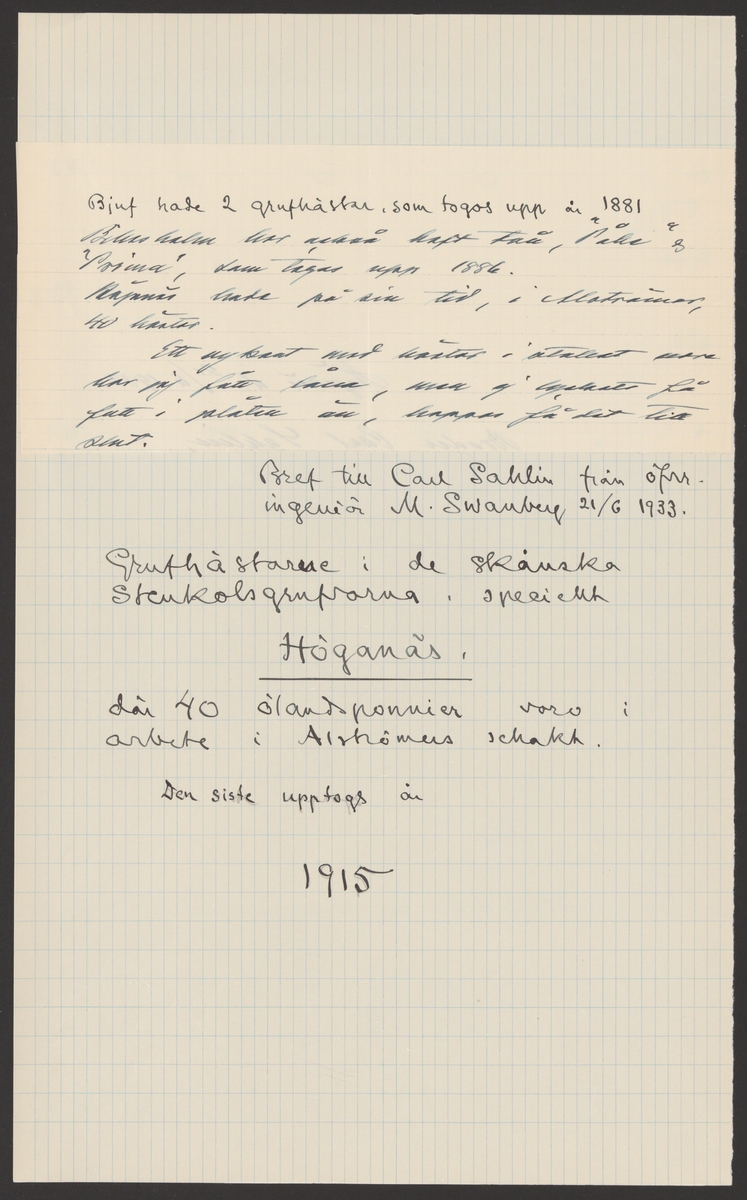 Bjuf hade 2 grufhästar, som togos upp år 1881
Billesholm har också haft två, "Pålle" &
"Prima", som togos upp 1886.
Höganäs hade på sin tid, i Alströmer,
40 hästar.
Ett vykort med hästar i stallet nere
har jag fått låna, men ej lyckats få
fatt i plåten än, hoppas få det till
slut.
Bref till Carl Sahlin från öfver-
ingeniör M. Swanberg 21/6 1933.
Grufhästarne i de skånska
Stenkolsgrufvorna, speciellt
Höganäs,
där 40 ölandsponnier voro i
arbete i Alströmers schakt.
Den siste upptogs år
1915